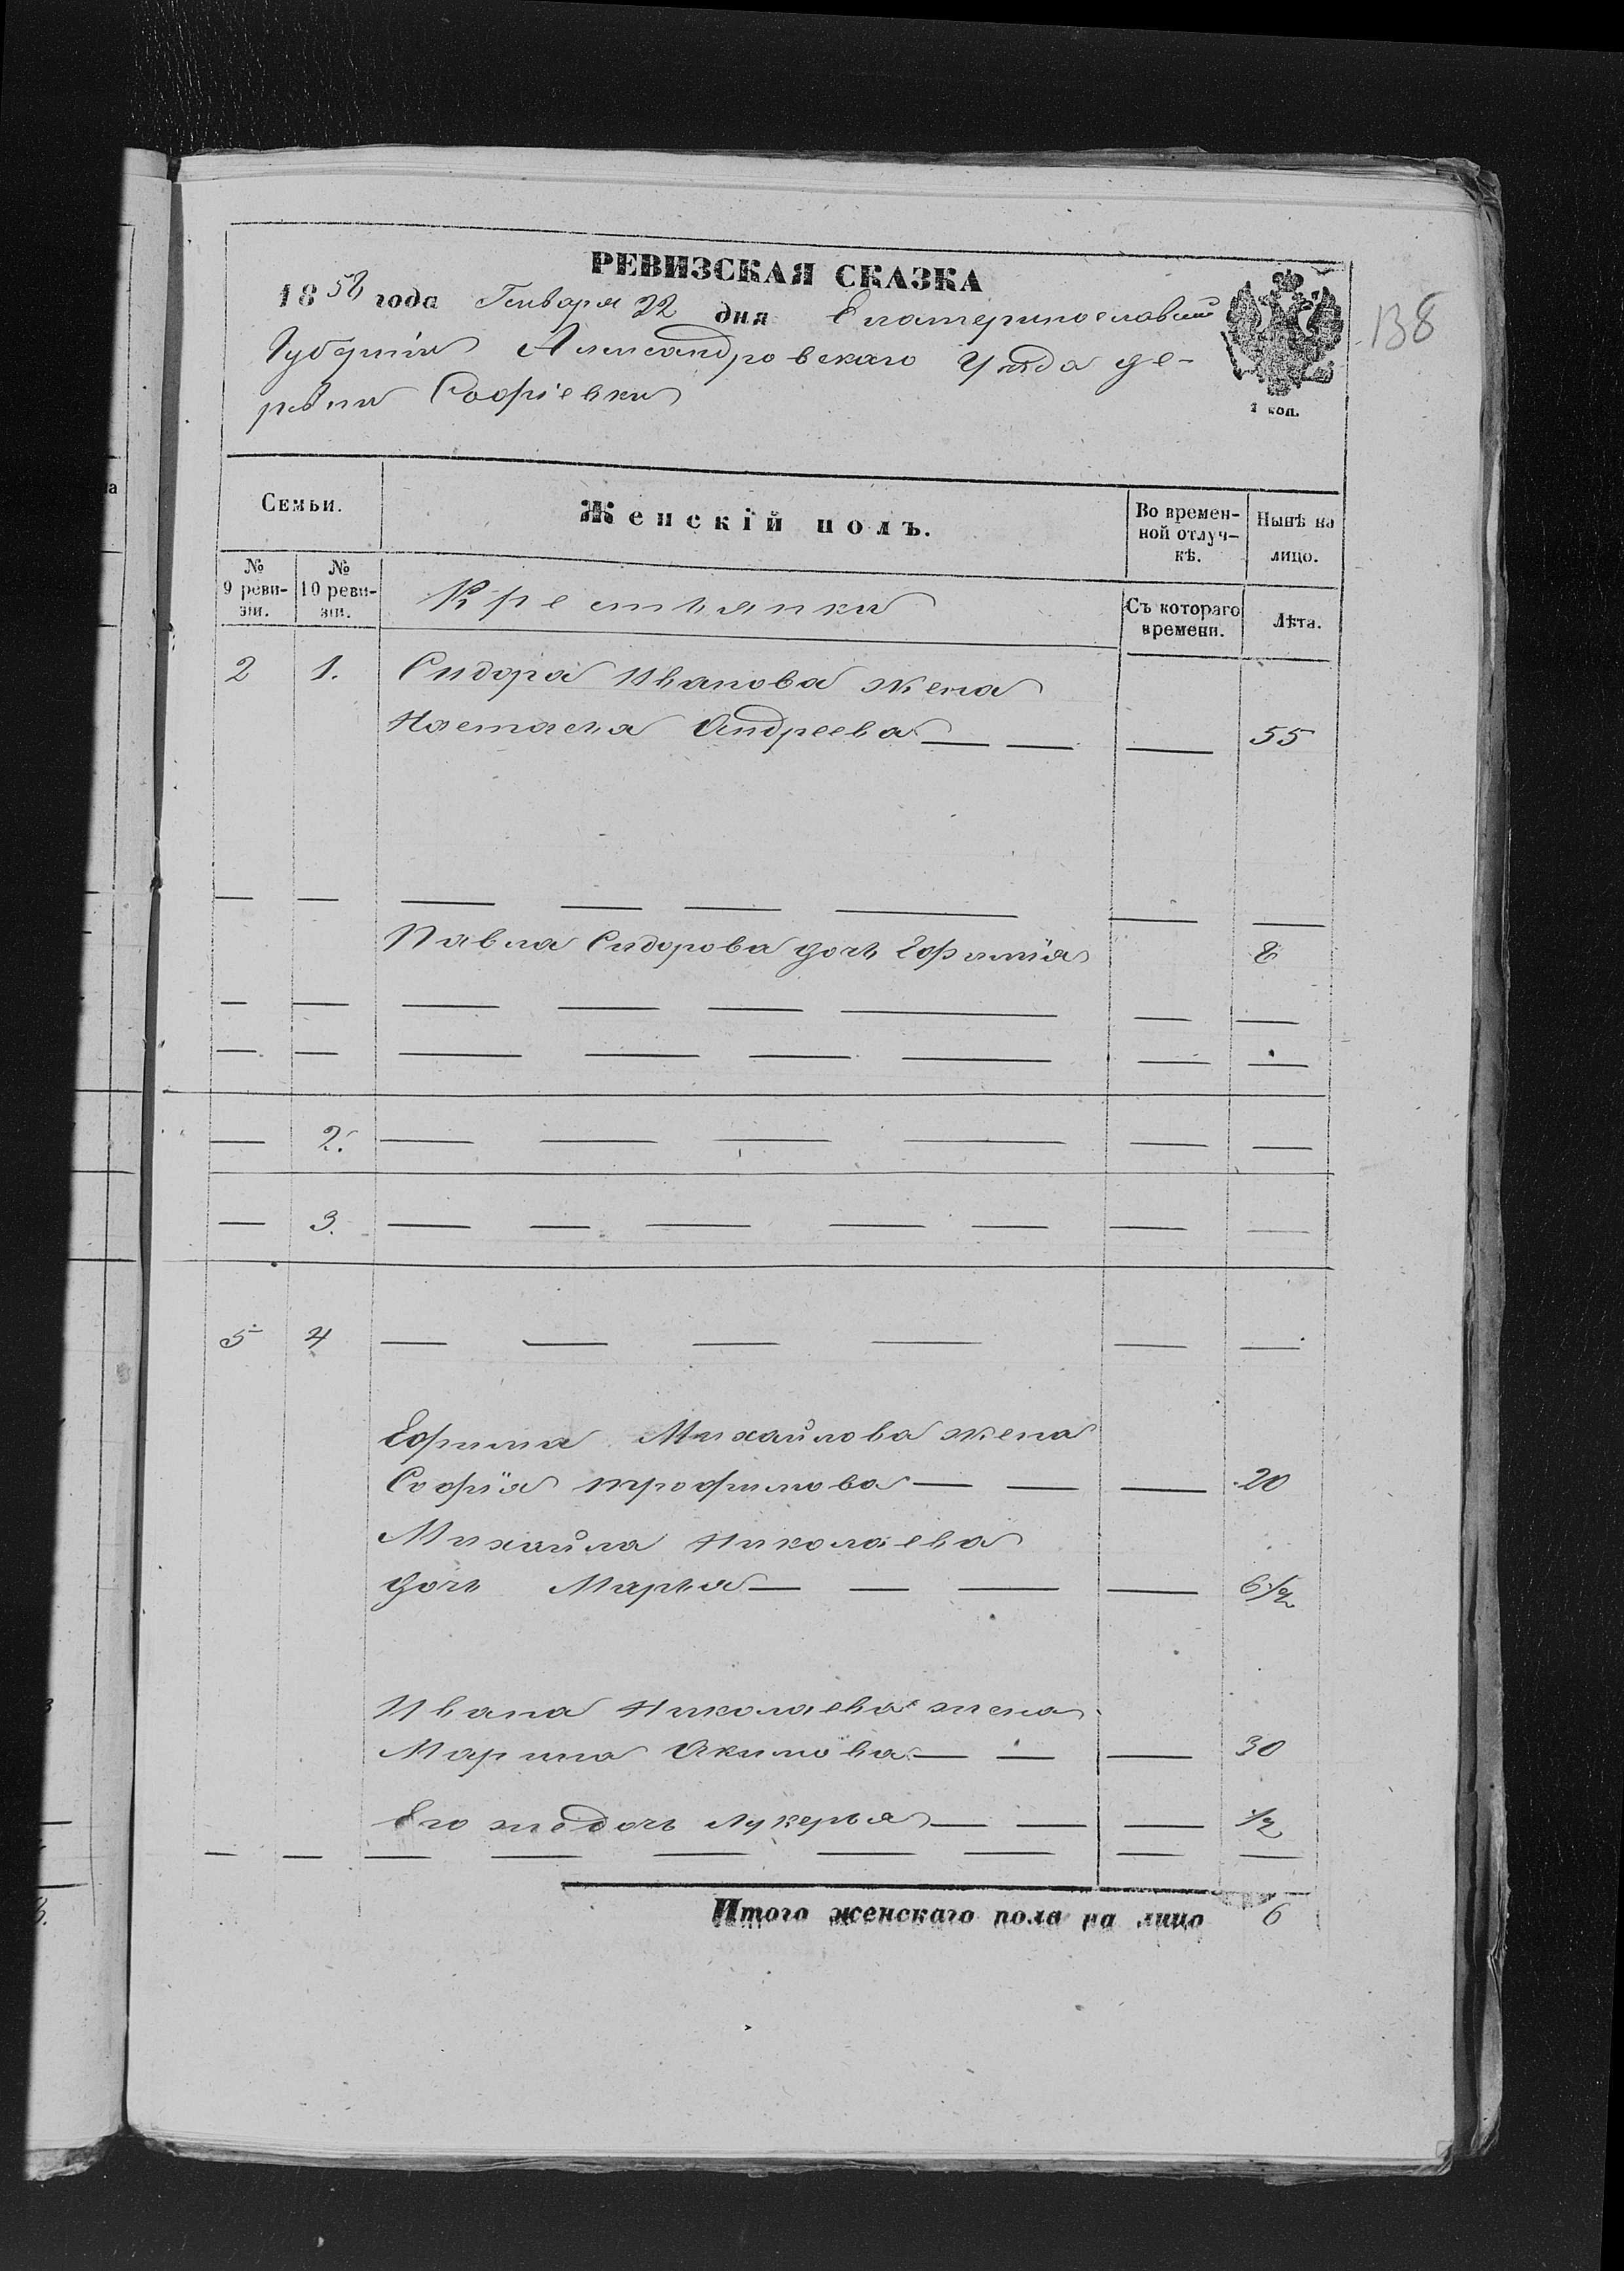 РЕВИЗСКАЯ СКАЗКА
1858 года Генваря 22 дня Екатеринославской
Губерніи Александровскаго Уѣзда де-
ревни Софіевки
1 коп.
138
Семьи.
Женскій полъ.
Во времен-
ной отлуч-
кѣ.
Нынѣ на
лицо.
№
9 реви-
зіи.
№
10 реви-
зіи.
Крестьянки
Съ котораго
времени.
Лѣта.
2 1. Сидора Иванова жена
Настасья Андреева — — — 55
— — — — — — — —
Павла Сидорова дочь Ефимія 8
— — — — — — — —
— — — — — — — —
— 2. — — — — — —
— 3. — — — — — — —
5 4 — — — — — —
Ефима Михайлова жена
Софія Трофимова — — — 20
Михайла Николаева
дочь Марья — — — — 6½
Ивана Николаева жена
Марина Акимова — — — 30
Его же дочь Лукерья — — — ½
— — — — — — — — —
Итого женскаго пола на лицо 6